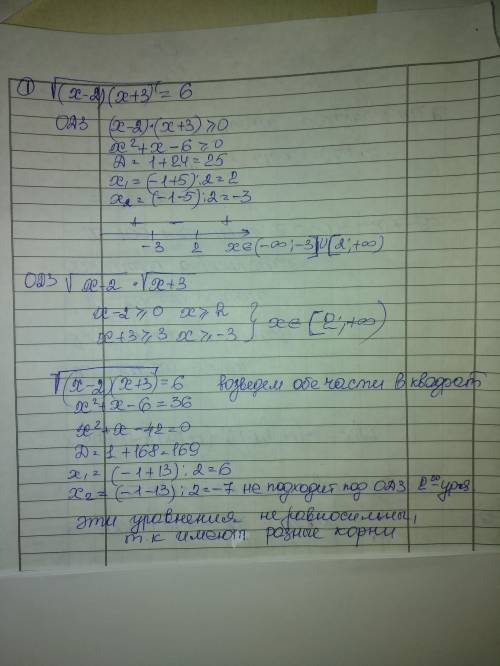 ① √(x-2)(x+3) = 6
ОДЗ (x-2)·(x+3) ≥ 0
x²+x-6 ≥ 0
D = 1+24 = 25
x₁ = (-1+5):2 = 2
x₂ = (-1-5):2 = -3
+ − +
-3 2 x∈(-∞;-3]U[2;+∞)
ОДЗ √x-2 · √x+3
x-2 ≥ 0 x ≥ 2
x+3 ≥ 3 x ≥ -3 } x∈[2;+∞)
√(x-2)(x+3) = 6 возведем обе части в квадрат
x²+x-6 = 36
x²+x-42 = 0
D = 1+168 = 169
x₁ = (-1+13):2 = 6
x₂ = (-1-13):2 = -7 не подходит под ОДЗ 2ᵒᵍᵒ ур.
Эти уравнения неравносильны,
т к имеют разные корни